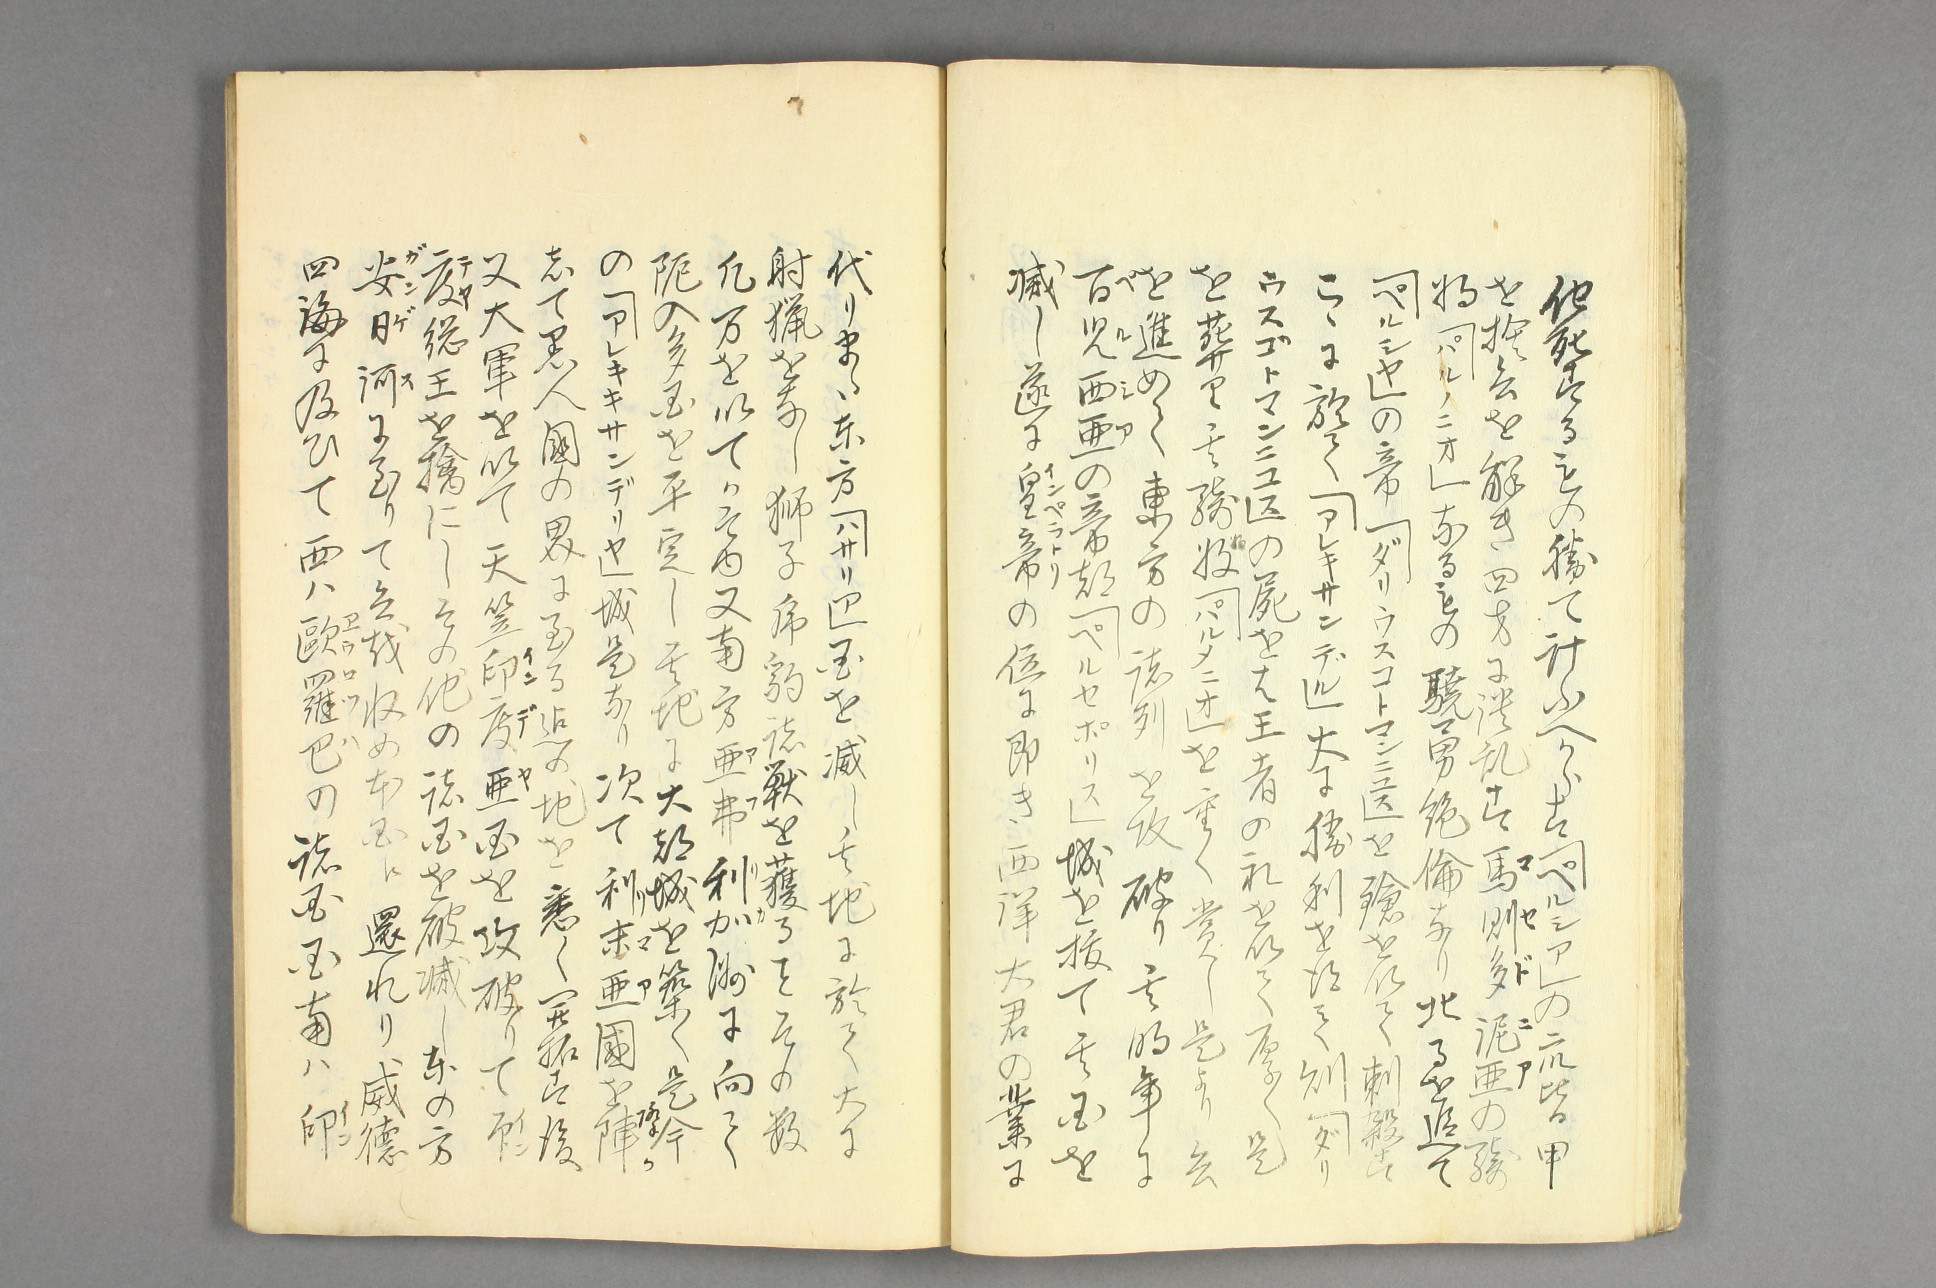 他死するもの勝て計ふへからす「ペルシア」の衆皆甲
を捨兵を解き四方に潰乱す馬則多泥亜の騎
将「パルメニオ」なるもの驍勇絶倫なり北るを追て
「ペルシヤ」の帝「ダリウスコトマンニュス」を鎗を以て刺殺す
こゝに於て「アレキサンデル」大に勝利を得て則「ダリ
ウスゴトマンニュス」の屍を王者の礼を以て厚く是
を葬り其騎将「パルメニオ」を重く賞し是より兵
を進めて東方の諸列を攻破り其明年に
百児西亜の帝都「ペルセポリス」城を抜て其国を
滅し遂に皇帝の位に即き西洋大君の業に
代り東方「ハサリア」国を滅し其地に於て大に
射猟をなし獅子虎豹諸獣を獲ることその数
凡万を以てかそふ又南方亜弗利加洲に向て
陀入多国を平定し其地に大都城を築く是今
の「アレキサンデリヤ」城是なり次て利未亜國を陣
して黒人國の界に至る迄の地を悉く開拓す後
又大軍を以て天竺印度亜国を攻破りて印
度総王を擒にしその他の諸国を破滅し東の方
安日河に至りて兵を収め本国に還れり威徳
四海に及ひて西ハ歐羅巴の諸国南ハ印